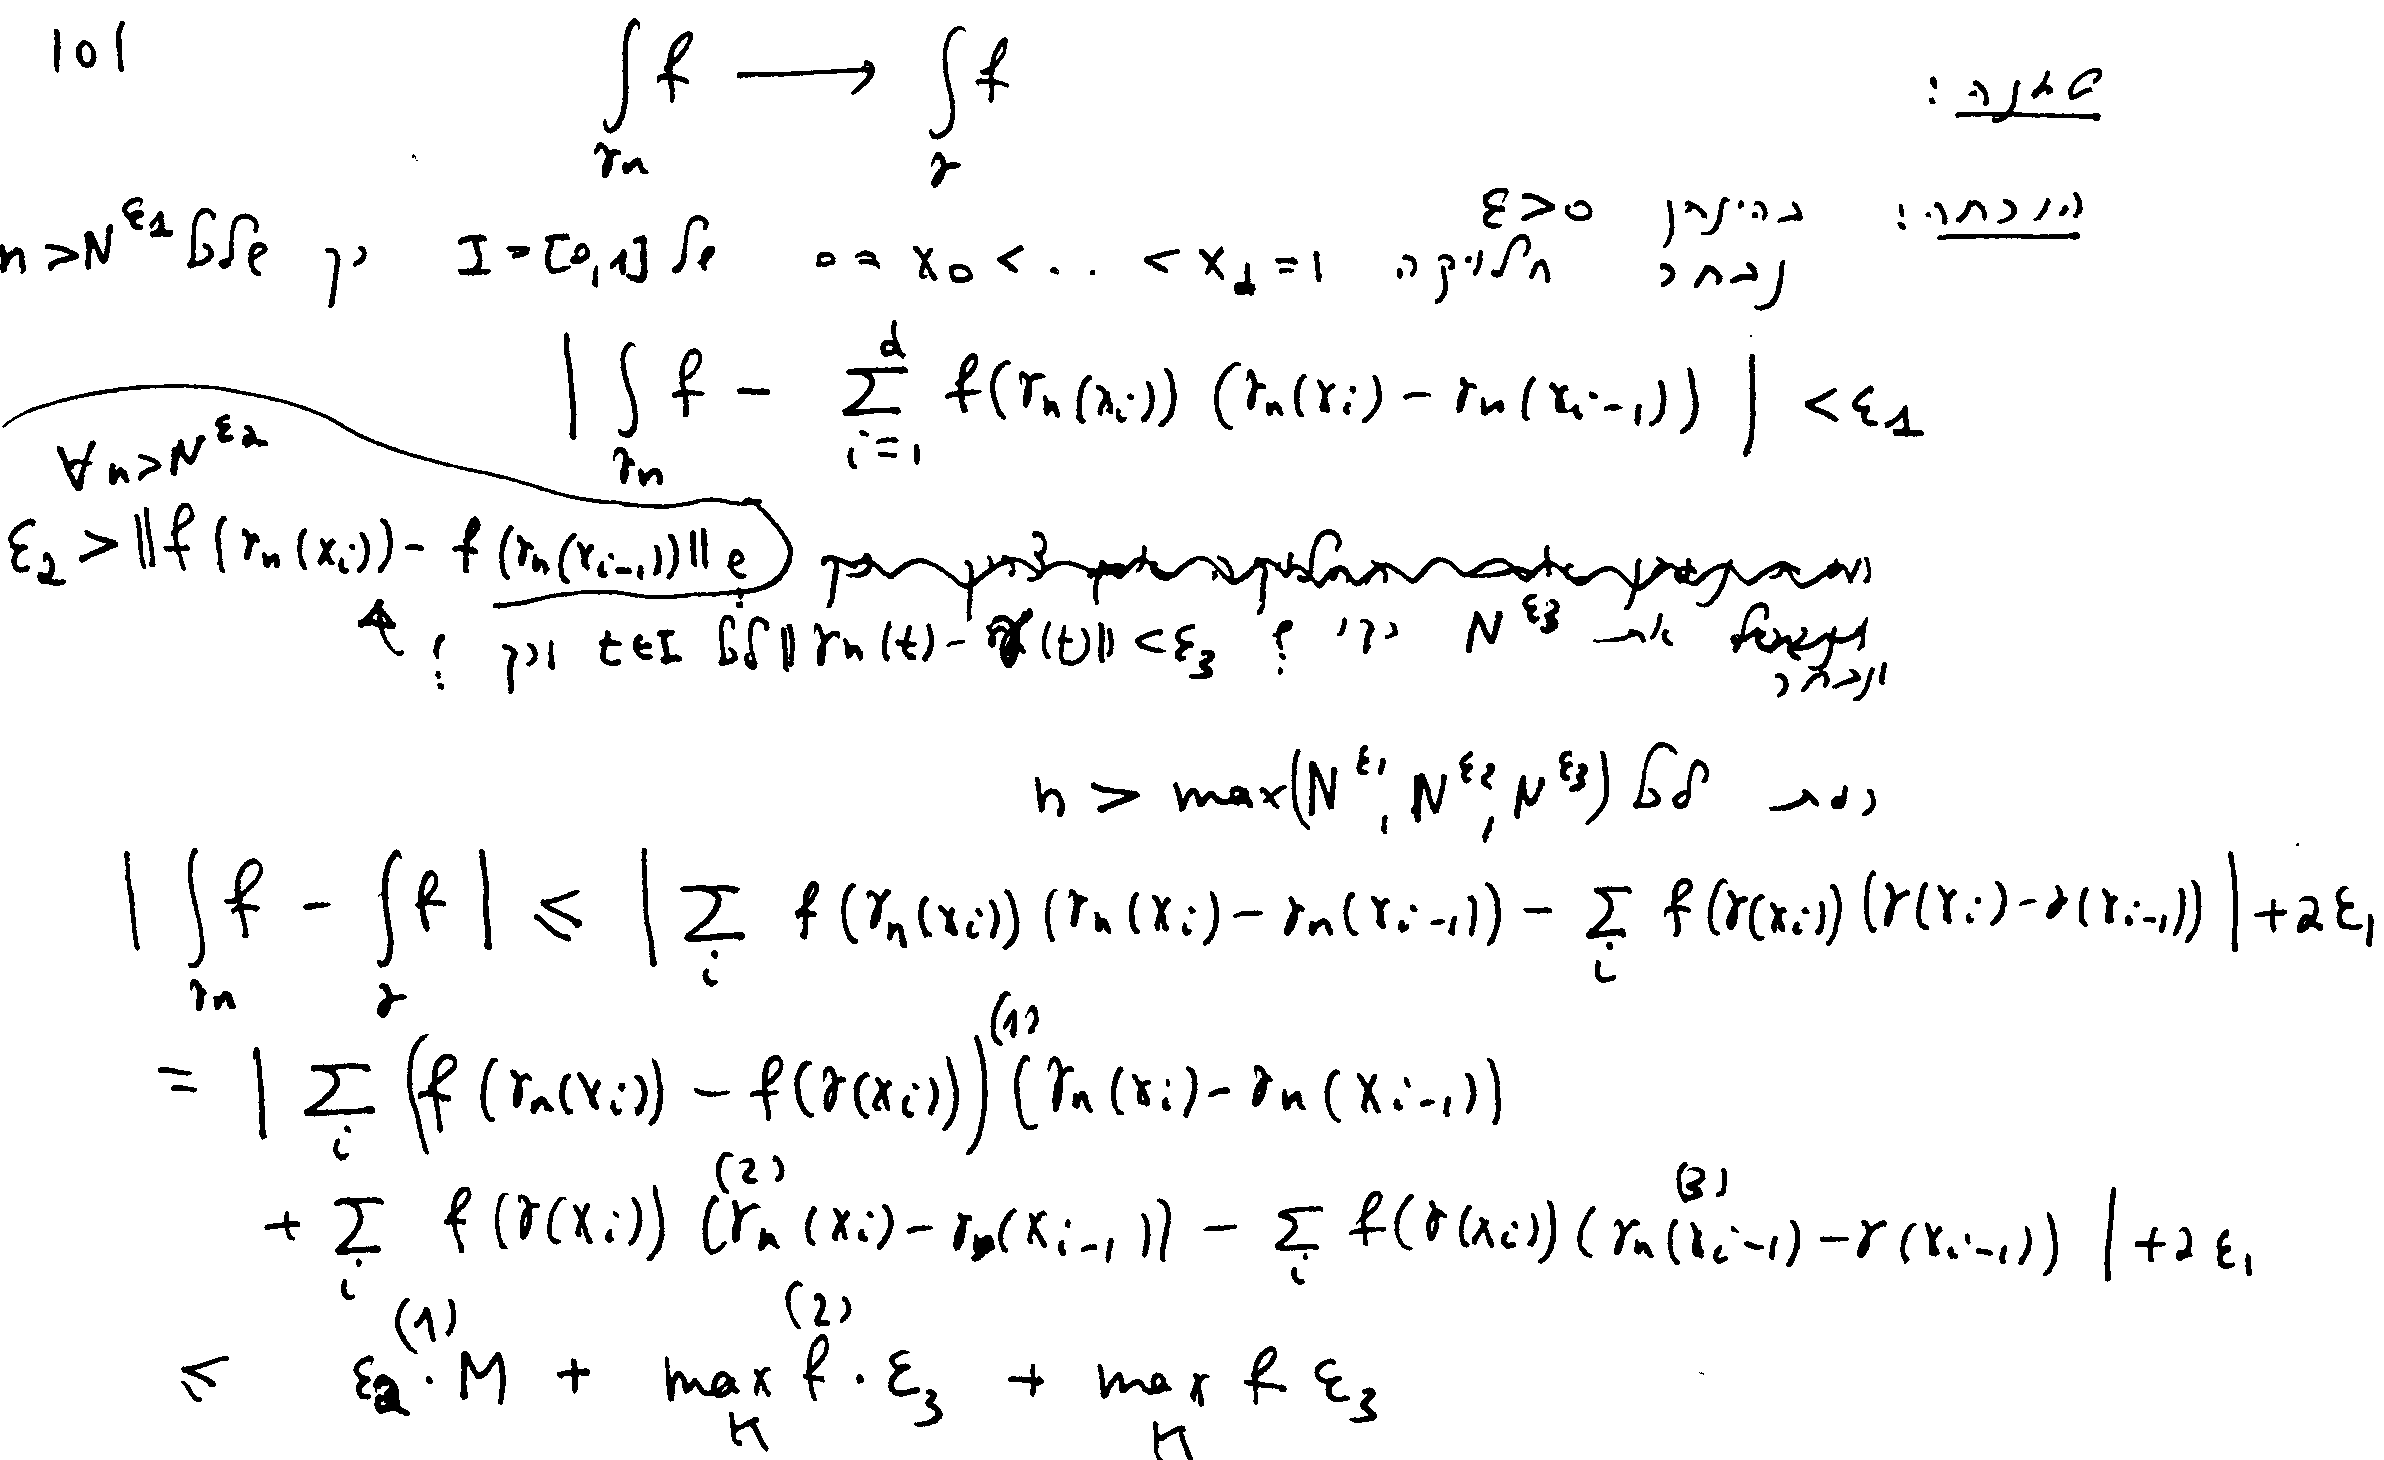 101
טענה: $\int_{\gamma_n} f \longrightarrow \int_{\gamma} f$
הוכחה: בהינתן $\varepsilon > 0$
נבחר חלוקה $0 = x_0 < .. < x_d = 1$ של $I = [0,1]$ כך שלכל $n > N^{\varepsilon_1}$
$\left| \int_{\gamma_n} f - \sum_{i=1}^{d} f(\gamma_n(x_i)) (\gamma_n(x_i) - \gamma_n(x_{i-1})) \right| < \varepsilon_1$
$\forall n > N^{\varepsilon_2}$
ש $\varepsilon_2 > \| f(\gamma_n(x_i)) - f(\gamma_n(x_{i-1})) \|$
ונבחר את $N^{\varepsilon_3}$ כך ש: $\| \gamma_n(t) - \gamma(t) \| < \varepsilon_3$ לכל $t \in I$ וכך ש:
כעת לכל $n > \max(N^{\varepsilon_1}, N^{\varepsilon_2}, N^{\varepsilon_3})$
$\left| \int_{\gamma_n} f - \int_{\gamma} f \right| \leq \left| \sum_i f(\gamma_n(x_i)) (\gamma_n(x_i) - \gamma_n(x_{i-1})) - \sum_i f(\gamma(x_i)) (\gamma(x_i) - \gamma(x_{i-1})) \right| + 2\varepsilon_1$
$= \left| \sum_i \left( f(\gamma_n(x_i)) - f(\gamma(x_i)) \right)^{(1)} (\gamma_n(x_i) - \gamma_n(x_{i-1})) \right.$
$\left. + \sum_i f(\gamma(x_i)) \overset{(2)}{(\gamma_n(x_i) - \gamma_n(x_{i-1}))} - \sum_i f(\gamma(x_i)) \overset{(3)}{(\gamma_n(x_{i-1}) - \gamma(x_{i-1}))} \right| + 2\varepsilon_1$
$\leq \overset{(1)}{\varepsilon_2 \cdot M} + \overset{(2)}{\max_K f \cdot \varepsilon_3} + \max_K f \varepsilon_3$